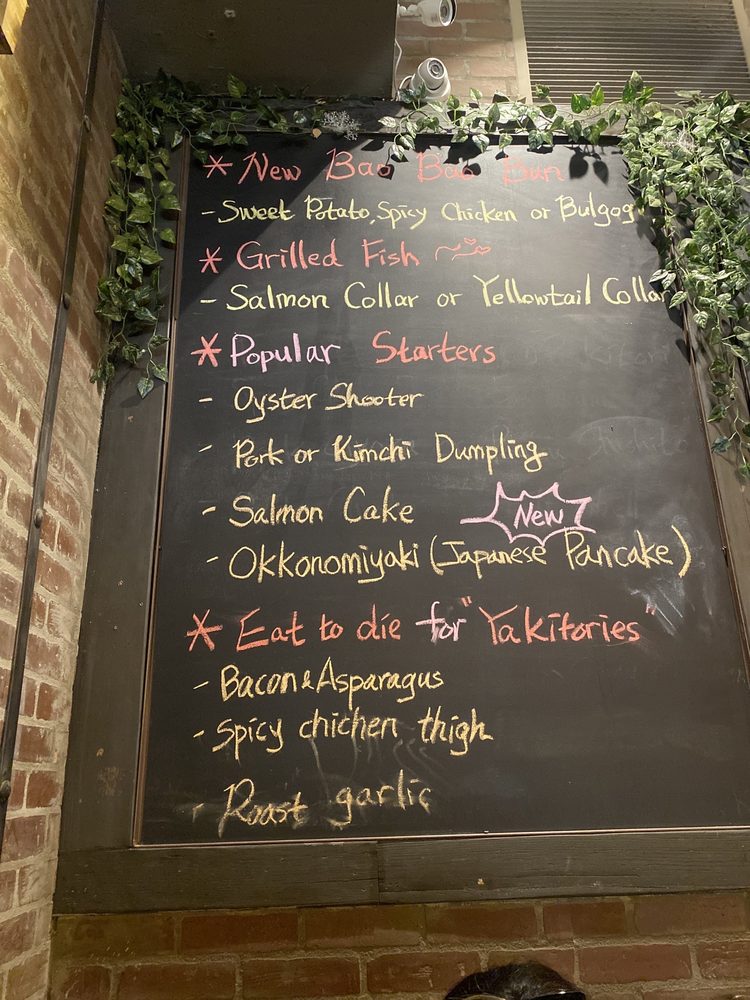 * New Bao Bao Bun
- Sweet Potato, Spicy Chicken or Bulgogi
* Grilled Fish
- Salmon Collar or Yellowtail Collar
* Popular Starters
- Oyster Shooter
- Pork or Kimchi Dumpling
- Salmon Cake
New
- Okkonomiyaki (Japanese Pancake)
* Eat to die for "Yakitories"
- Bacon & Asparagus
- Spicy chichen thigh
- Roast garlic